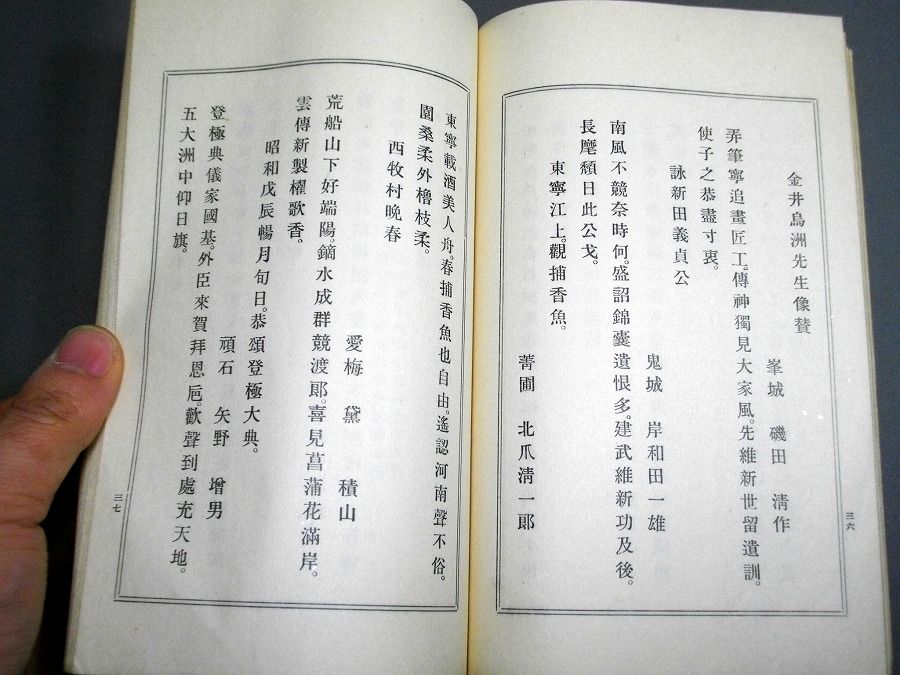 金井烏洲先生像贊
峯城 磯田 淸作
弄筆寧追畫匠工。傳神獨見大家風。先維新世留遺訓。
使子之恭盡寸衷。
詠新田義貞公
鬼城 岸和田一雄
南風不競奈時何。盛詔錦囊遺恨多。建武維新功及後。
長麾頽日此公戈。
東寧江上。觀捕香魚。
菁圃 北爪淸一郞
三六
東寧載酒美人舟。春捕香魚也自由。遙認河南聲不俗。
園桑柔外櫓枝柔。
西牧村晩春
愛梅 黛 積山
荒船山下好端陽。鏑水成群競渡郞。喜見菖蒲花滿岸。
雲傳新製櫂歌香。
昭和戊辰暢月旬日。恭頌登極大典。
頑石 矢野 增男
登極典儀家國基。外臣來賀拜恩巵。歡聲到處充天地。
五大洲中仰日旗。
三七